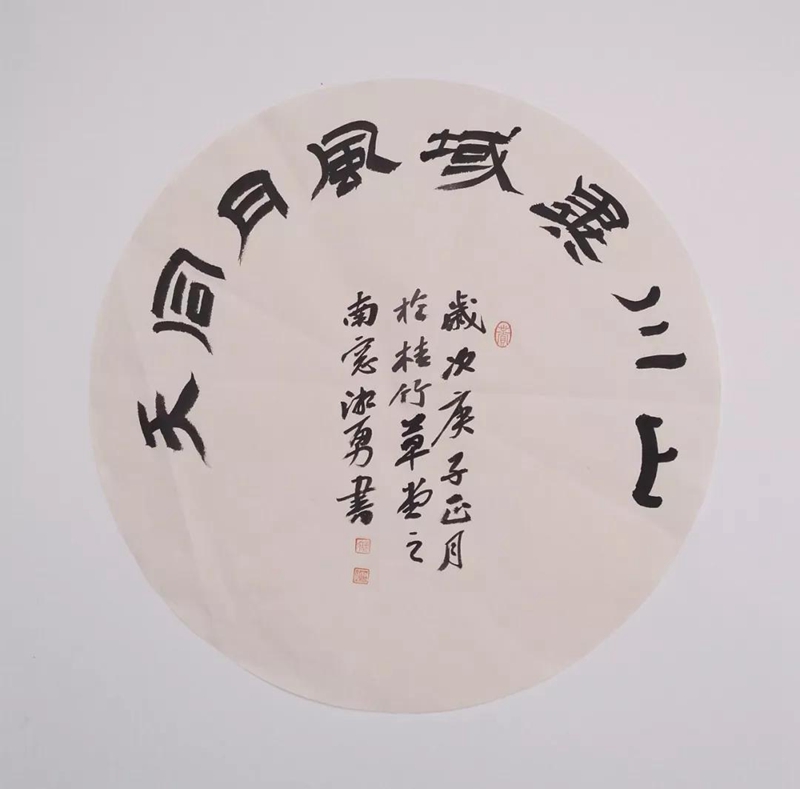 山川異域風月同天
歲次庚子正月
於桂竹草堂之
南窓湘勇書